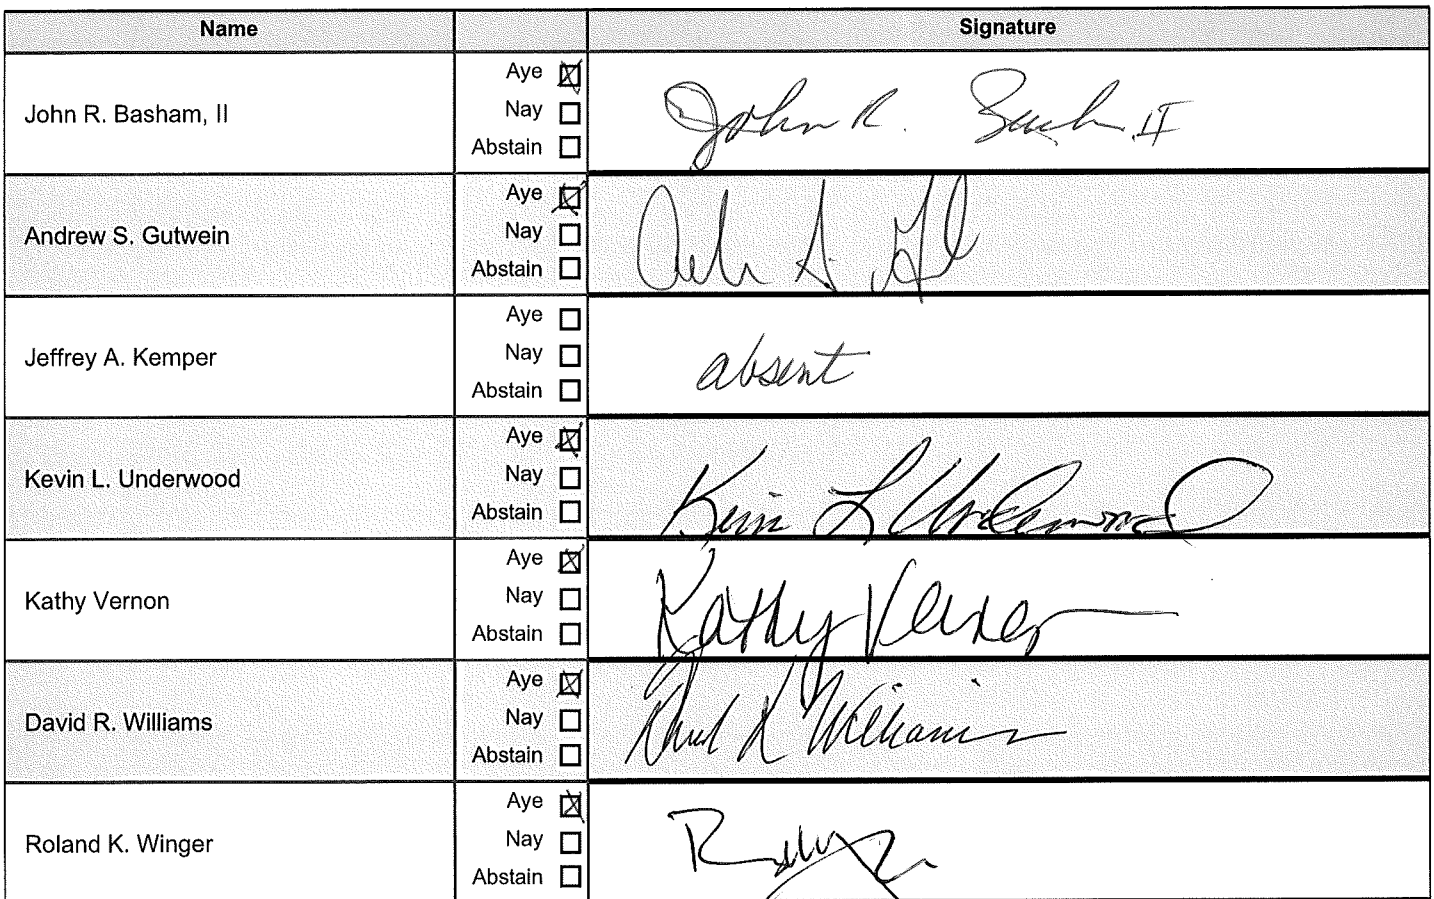 Name Signature
John R. Basham, II
Aye ☒
Nay ☐
Abstain ☐
John R. Bash II
Andrew S. Gutwein
Aye ☒
Nay ☐
Abstain ☐
Jeffrey A. Kemper
Aye ☐
Nay ☐
Abstain ☐
absent
Kevin L. Underwood
Aye ☒
Nay ☐
Abstain ☐
Kevin L Underwood
Kathy Vernon
Aye ☒
Nay ☐
Abstain ☐
Kathy Vernon
David R. Williams
Aye ☒
Nay ☐
Abstain ☐
David R Williams
Roland K. Winger
Aye ☒
Nay ☐
Abstain ☐